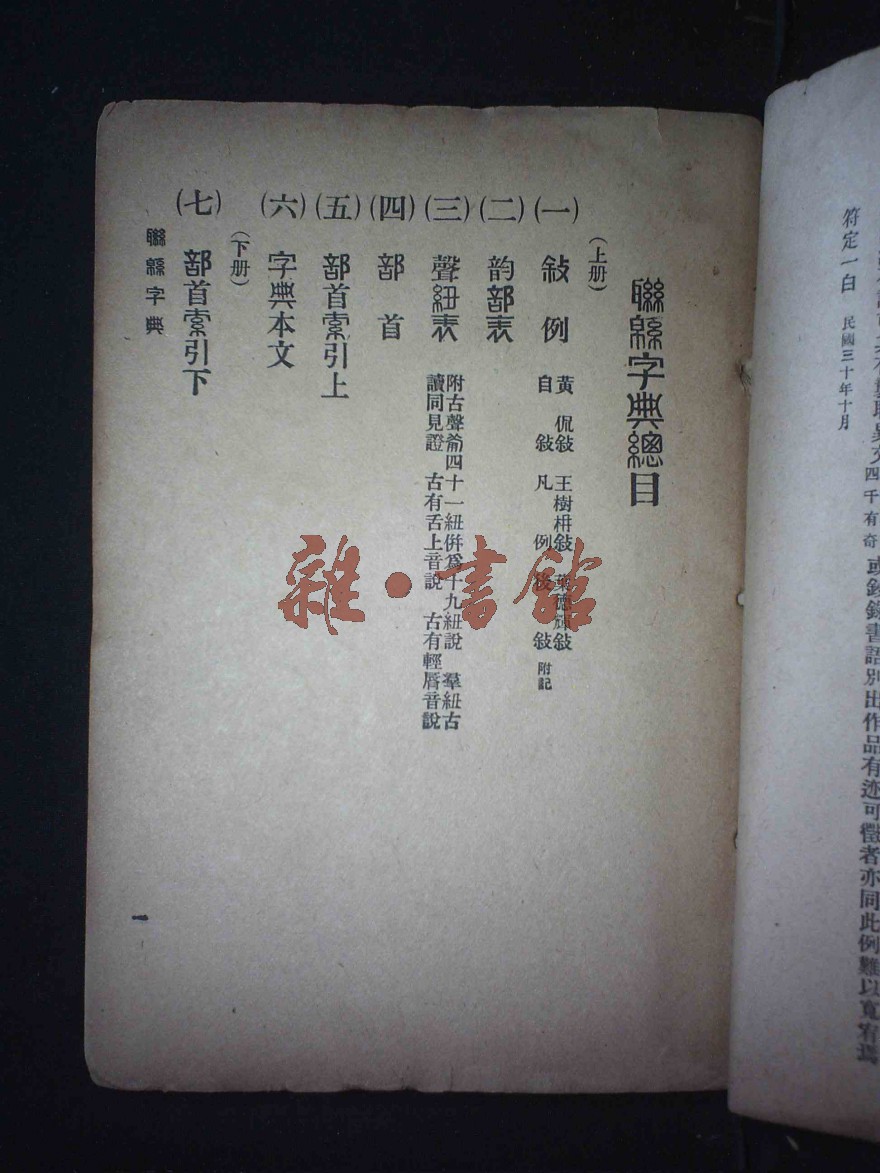 書語別出作品有迹可徵者亦同此例難以寬宥焉
符定一白 民國三十年十月
聯緜字典總目
(上册)
(一) 敍例 黃侃敍 王樹枏敍 葉德輝敍
自敍 凡例 後敍 附記
(二) 韵部表
(三) 聲紐表 附古聲四十一紐併爲十九紐說 羣紐古
讀同見證 古有舌上音說 古有輕脣音說
(四) 部首
(五) 部首索引上
(六) 字典本文
(下册)
(七) 部首索引下
聯緜字典
一
雜·書館